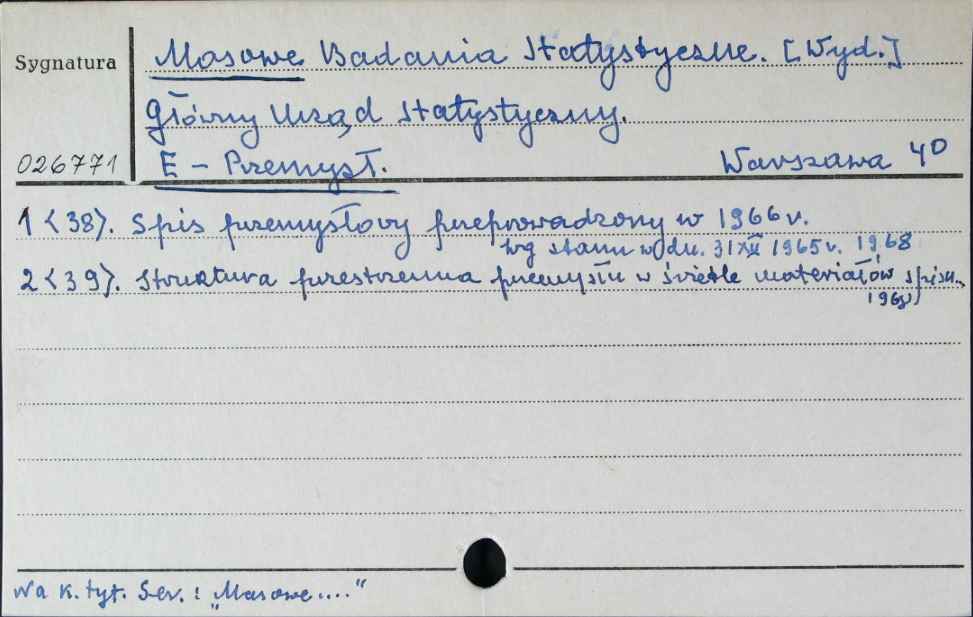 Sygnatura
Masowe Badania Statystyczne. [Wyd.]
Główny Urząd Statystyczny.
026771
E - Przemysł. Warszawa 4°
1 <38>. Spis przemysłowy przeprowadzony w 1966 r.
wg stanu w dn. 31 XII 1965 r. 1968
2 <39>. Struktura przestrzenna przemysłu w świetle materiałów spisu..
1968
Na k. tyt. Ser. : "Masowe...."